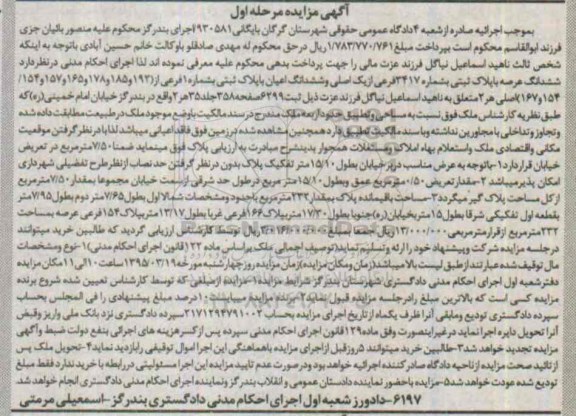 آگهی مزایده مرحله اول
بموجب اجرائیه صادره از شعبه ۴ دادگاه عمومی حقوقی شهرستان گرگان بایگانی ۹۳۰۵۸۱ اجرای بندرگز محکوم علیه منصور بائیان جزی
فرزند ابوالقاسم محکوم است بپرداخت مبلغ ۱/۷۸۳/۷۷۰/۷۶۱ ریال در حق محکوم له مهدی صادقلو باوکالت خانم حسین آبادی باتوجه به اینکه
شخص ثالث ناهید اسماعیل نیاگل فرزند عزت مالی را جهت پرداخت بدهی محکوم علیه معرفی نموده اند لذا اجرای احکام مدنی در نظر دارد
ششدانگ عرصه باپلاک ثبتی بشماره ۳۴۱۷ فرعی از یک اصلی وششدانگ اعیان باپلاک ثبتی بشماره ۱ فرعی از (۱۹۳و۱۸۵و۱۷۸و۱۶۵و۱۵۷و۱۵۴/
۱۵۴و۱۶۷) اصلی هر ۲ متعلق به ناهید اسماعیل نیاگل فرزند عزت ذیل ثبت ۶۲۹۹ صفحه ۳۵۸ جلد ۳۵ هر ۲ واقع در بندرگز خیابان امام خمینی (ره) که
طبق نظریه کارشناس ملک فوق نسبت به مساحی وتطبیق حدود اربعه ملک مندرج در سند مالکیت باوضع موجود ملک در طبیعت مطابقت داده شده
وتجاوز وتداخلی با مجاورین نداشته وباسند مالکیت تطبیق دارد همچنین مشاهده شده در زمین فوق فاقد اعیانی میباشد لذا با در نظر گرفتن موقعیت
مکانی واقتصادی ملک واستعلام بهاء املاک ومستغلات همجوار بدینشرح مبادرت به ارزیابی پلاک فوق مینماید ضمنا ۷/۵۰ مترمربع در تعریض
خیابان قرار دارد ۱-باتوجه به عرض مناسب در بر خیابان بطول ۱۵/۱۰ متر تفکیک پلاک بدون در نظر گرفتن حد نصاب از نظر طرح تفضیلی شهرداری
امکان پذیر میباشد ۲-مقدار تعریض ۰/۵۰ مترمربع عمق وبطول ۱۵/۱۰ متر مربع در طول حد شرقی از سمت خیابان مجموعا بمقدار ۷/۵۰ مترمربع
از کل مساحت پلاک گیر میگردد ۳-مساحت باقیمانده پلاک بمقدار ۲۳۲ مترمربع باحدود ومشخصات شمالا اول بطول ۷/۶۵ متر دوم بطول ۷/۹۵ متر
بقطعه اول تفکیکی شرقا بطول ۱۵ متر بخیابان (ره) جنوبا بطول ۱۷/۳۰ متر بپلاک ۱۶۶ فرعی غربا بطول ۱۳/۱۷ متر بپلاک ۱۵۴ فرعی عرصه بمساحت
۲۳۲ مترمربع از قرار مترمربعی ۱۳/۰۰۰/۰۰۰ ریال جمعا بمبلغ ۳/۰۱۶/۰۰۰/۰۰۰ ریال توسط کارشناس ارزیابی گردید که طالبین خرید میتوانند
در جلسه مزایده شرکت وپیشنهاد خود را ارائه وتسلیم نماید (توصیف اجمالی ملک براساس ماده ۱۲۲ قانون اجرای احکام مدنی) ۱-نوع ومشخصات
مال توقیف شده عبارتند از طبق لیست بالا میباشد (زمان ومکان مزایده) زمان مزایده روز چهارشنبه مورخه ۱۳۹۵/۰۳/۱۹ ساعت ۱۰ الی ۱۱ مکان مزایده
دفتر شعبه اول اجرای احکام مدنی دادگستری شهرستان بندرگز شرایط مزایده ۱-مزایده از مبلغی که توسط کارشناس تعیین شده شروع برنده
مزایده کسی است که بالاترین مبلغ را در جلسه مزایده قبول نماید ۲-برنده مزایده میبایست ۱۰ درصد مبلغ پیشنهادی را فی المجلس بحساب
سپرده دادگستری تودیع ومابقی آنرا ظرف یکماه از تاریخ اجرای مزایده بحساب ۲۱۷۱۲۹۴۷۹۱۰۰۲ سپرده دادگستری نزد بانک ملی واریز وقبض
آنرا تحویل دایره اجرا نماید در غیر اینصورت وفق ماده ۱۲۹ قانون اجرای احکام مدنی سپرده پس از کسر هزینه های اجرائی بنفع دولت ضبط وآگهی
مزایده تجدید خواهد شد ۳-طالبین خرید میتوانند ۵ روز قبل از اجرای مزایده باهماهنگی این اجرا اموال توقیفی را بازدید نماید ۴-تحویل ملک پس
از تائید صحت مزایده از ناحیه دادگاه صادرکننده اجرائیه خواهد بود ودرصورت عدم تایید مزایده این اجرا مسئولیتی در رابطه با خریدار ندارد فقط مبلغ
تودیع شده عودت خواهد شد ۵-مزایده باحضور نماینده دادستان عمومی و انقلاب بندرگز ونماینده اجرای احکام مدنی دادگستری انجام خواهد شد.
۶۱۹۷-دادورز شعبه اول اجرای احکام مدنی دادگستری بندرگز-اسمعیلی مرمتی